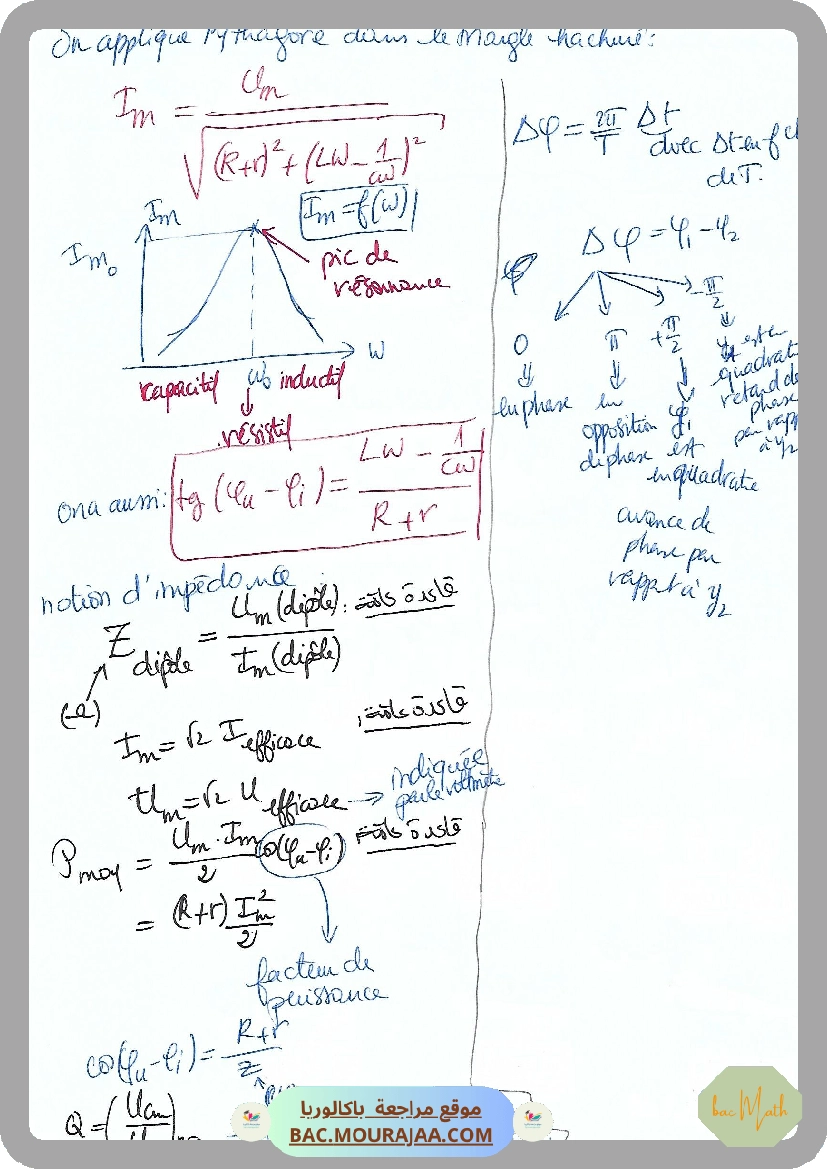 On applique Pythagore dans le triangle hachuré:
Im = Um / √((R+r)² + (LW - 1/CW)²)
Im
Im = f(w)
Im₀
pic de
résonnance
W
capacitif W₀ inductif
résistif
on a aussi: tg (φu - φi) = (LW - 1/CW) / (R+r)
notion d'impédance
Z dipôle = Um (dipôle) / Im (dipôle) : قاعدة عامة
(Ω)
Im = √2 I efficace قاعدة عامة
Um = √2 U efficace → indiquée
par le voltmètre
Pmoy = Um . Im / 2 cos(φu - φi) قاعدة عامة
= (R+r) Im² / 2
facteur de
puissance
cos(φu - φi) = R+r / Z
Q = (Ucm
Δφ = 2π/T Δt
avec Δt en f
de T.
Δφ = φ₁ - φ₂
φ
0 π +π/2 -π/2
en phase
en
opposition
de phase
y₁
est
en quadratie
avance de
phase par
rapport à y₂
est en
quadrat
retard de
phase
par rapp
à y₂
موقع مراجعة باكالوريا
BAC.MOURAJAA.COM
bac Math